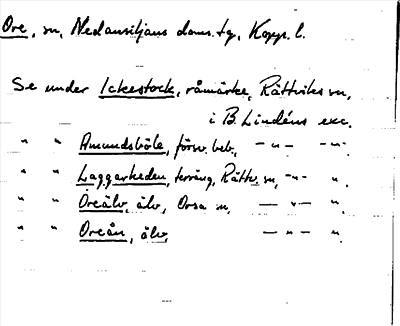 Ore, sn, Nedansiljans doms.tg, Kopp. l.
Se under Ickestock, råmärke, Rättviks sn,
i B. Lindéns exc.
" " Amundsböle, försv. beb., — " — — " —
" " Laggarheden, terräng, Rättv. sn, — " — ".
" " Oreälv, älv, Orsa sn, — " — ".
" " Oreån, älv, — " — ".